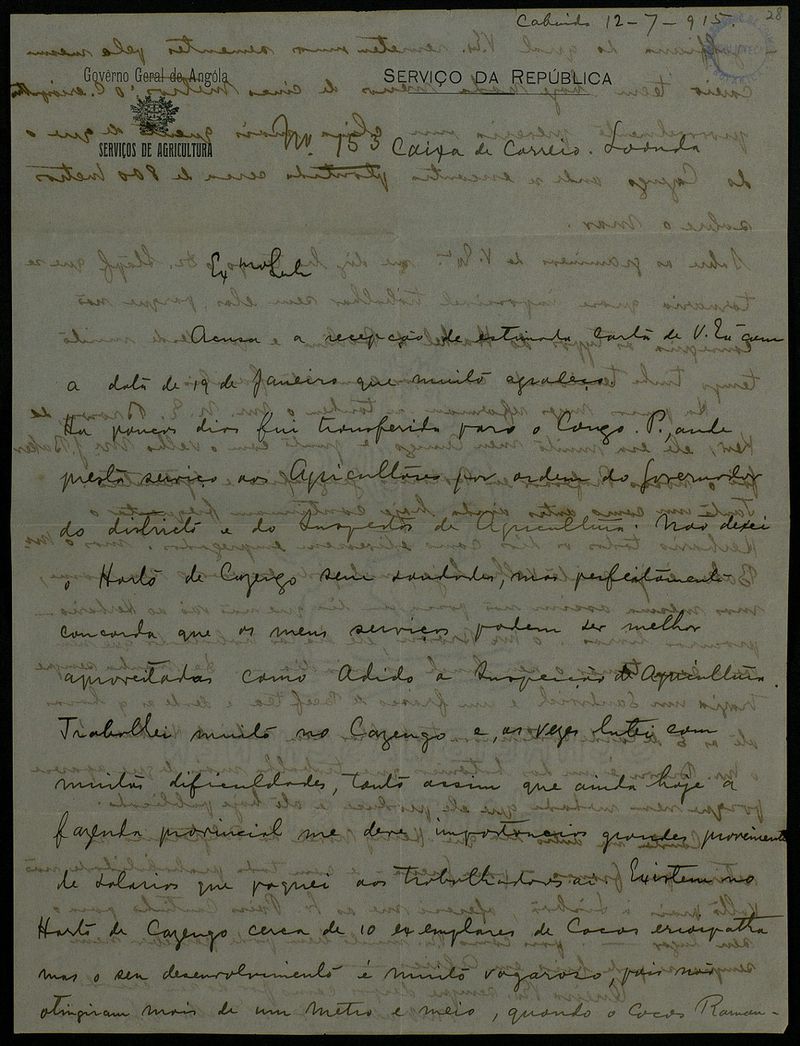 28
Cabinda 12-7-915.
Govêrno Geral de Angóla
SERVIÇO DA REPÚBLICA
SERVIÇOS DE AGRICULTURA
No 155 Caixa de Correio. Loanda
Exmo Snr
Acuso a recepção de estimada carta de V. Ex com
a data de 19 de Janeiro que muito agradeço.
Ha poucos dias fui transferido para o Congo. P., onde
presto serviço aos Agricultores por ordem do Governador
do districto e do Inspector de Agricultura. Nao deixei
o Horto de Cazengo sem saudades, mas perfeitamente
concordo que os meus serviços podem ser melhor
aproveitados como Adido a Inspeição d'Agricultura.
Trabalhei muito no Cazengo e, as vezes lutei com
muitas dificuldades, tanto assim que ainda hoje a
fazenda provincial me deve importancias grandes proveniente
de salarios que paguei aos trabalhadores ai. Existem no
Horto de Cazengo cerca de 10 exemplares de Cocos eriospatha
mas o seu desenvolvimento é muito vagaroso, pois não
atingiram mais de um metro e meio, quando o Cocos Roman-